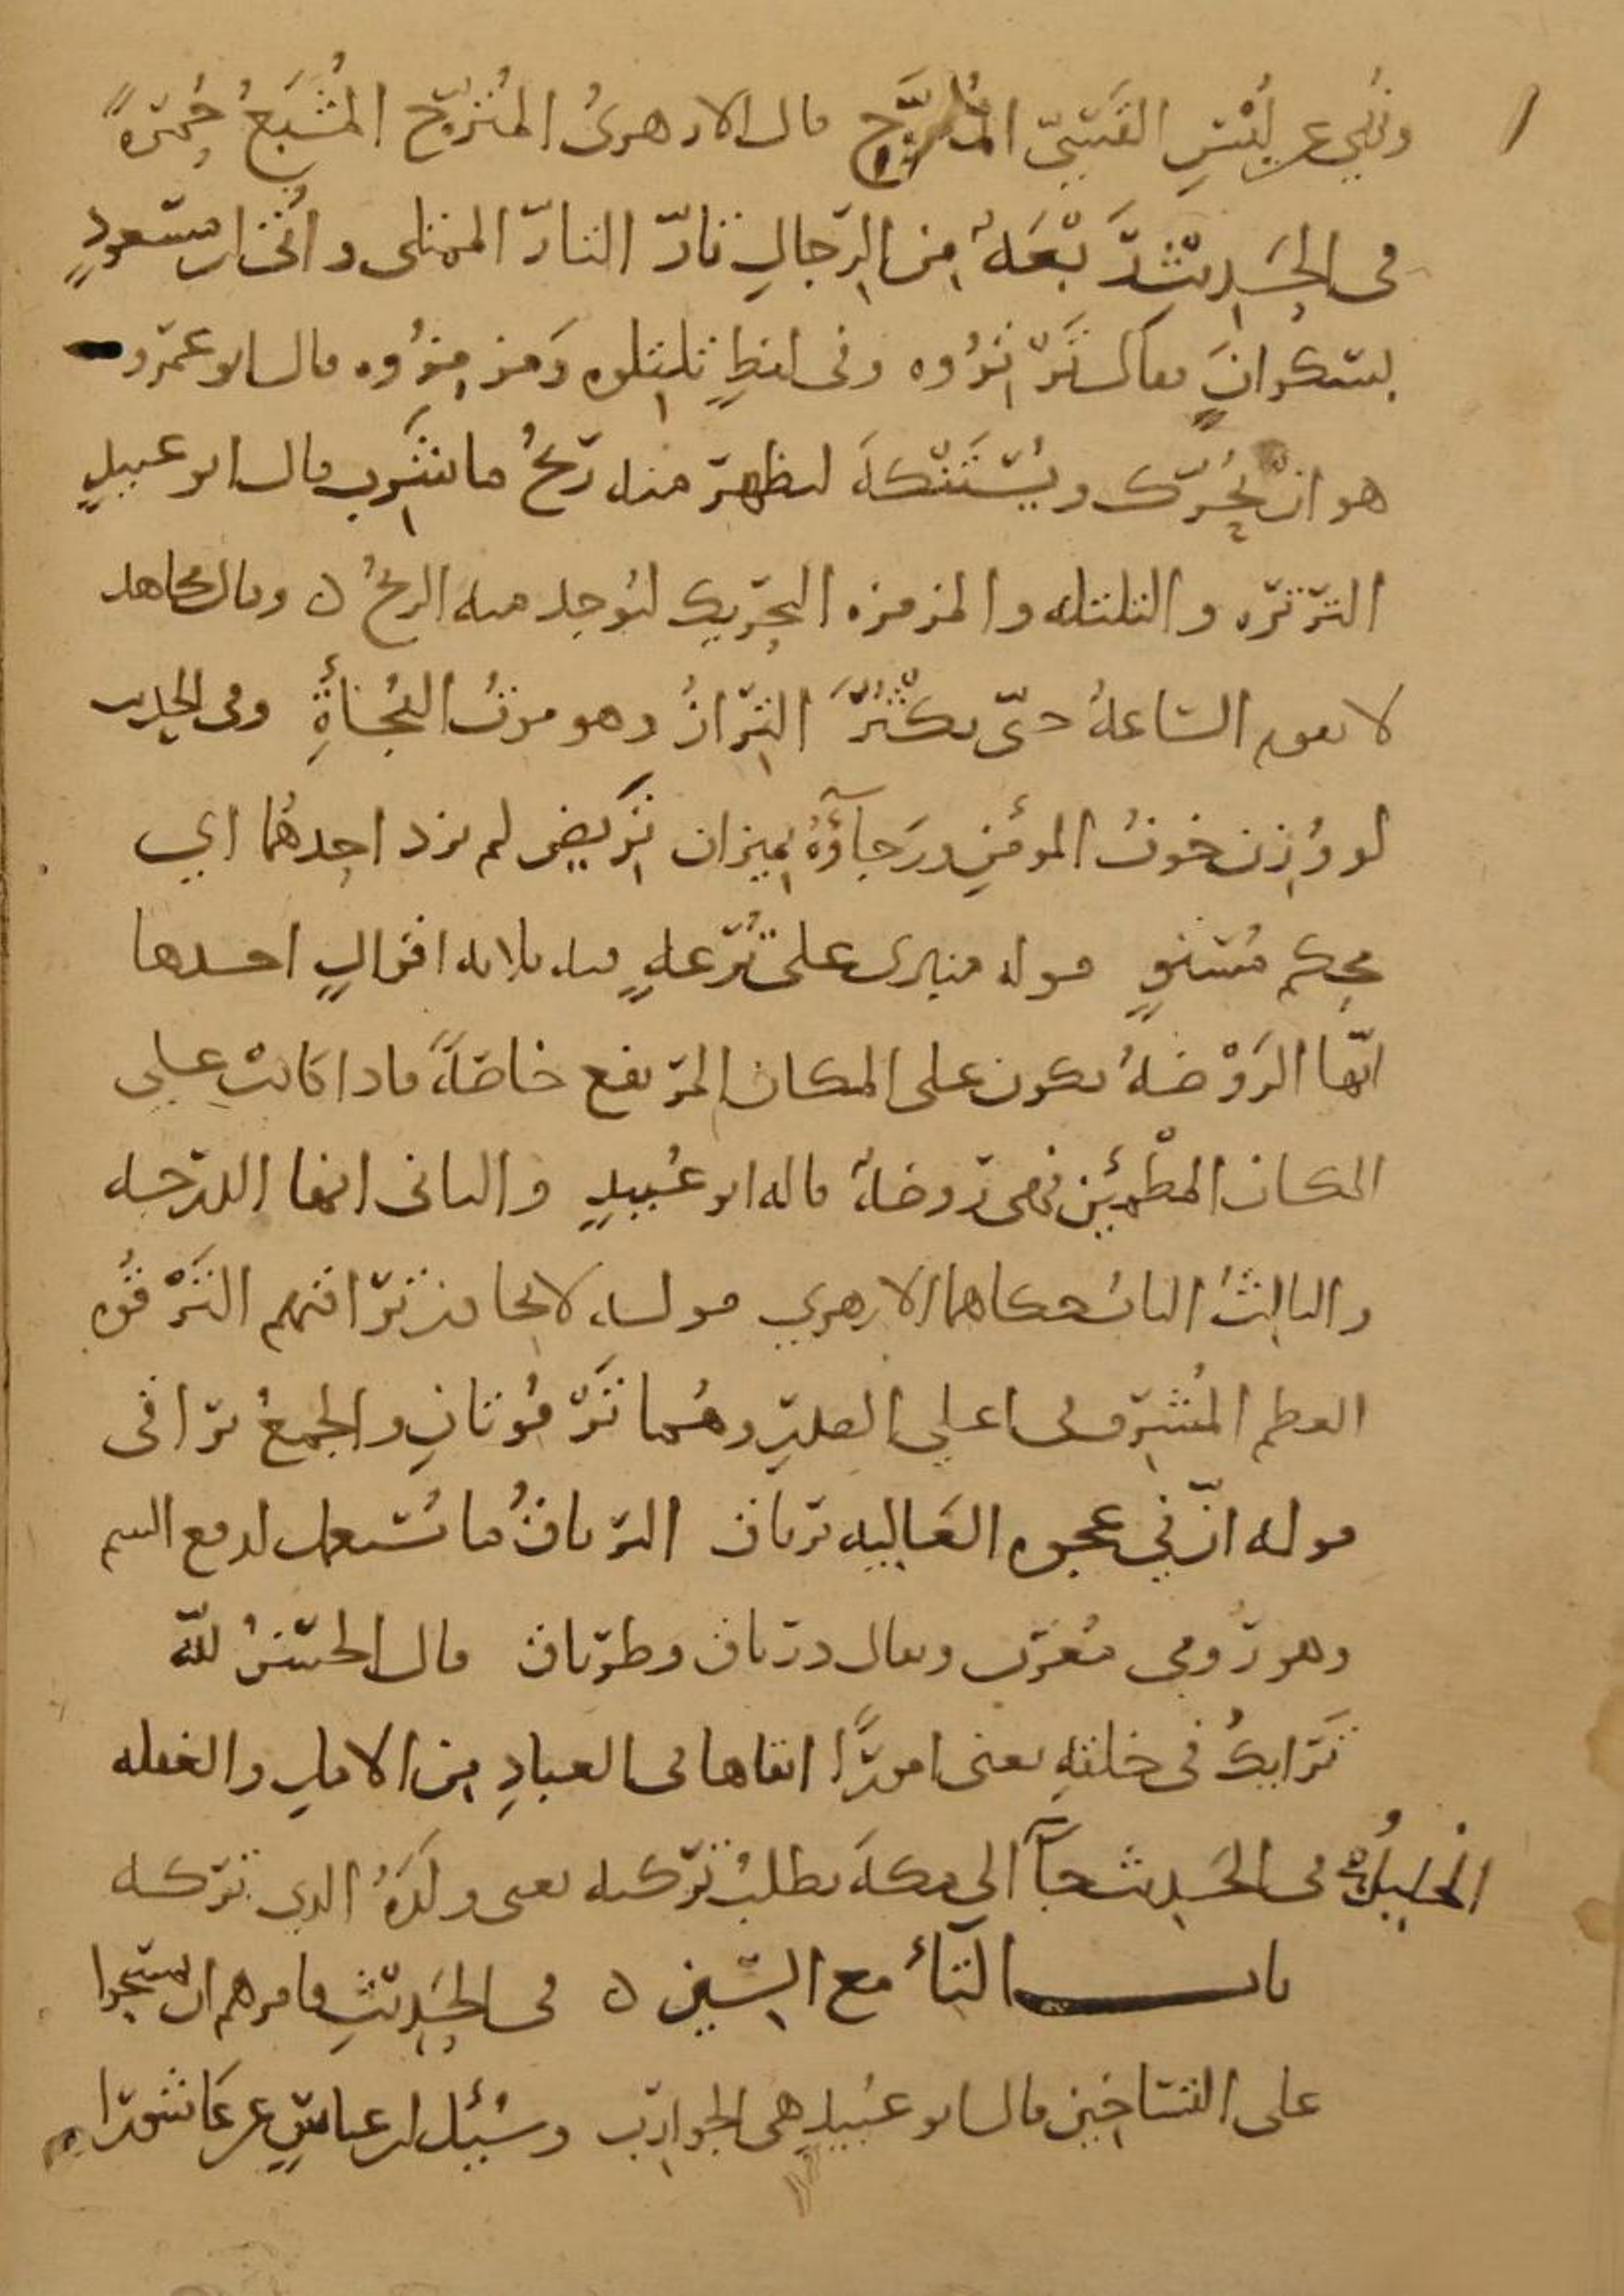 ونُهي عن لُبْسِ القَسِّيّ المُتَرَّج قال الازهريُ المُتَرَّج المُشْبَعُ حُمْرةً
في الحَدِيثِ رَبْعَةٌ من الرّجالِ تَارّ التارّ الممتلى واُتي ابن مسعودٍ
بسَكرانَ فقال تَرْتِرُوه وفي لفظٍ تلتلوه ومَزمِزُوه قال ابو عَمْرو
هو انْ يُحَرّك ويُسْتَنْكهَ ليظهر منه رِيحُ ما شَرِب قال ابو عبيدٍ
الترتره والتلتله والمزمزه التحريك ليُوجد منه الريحُ ه وقال مجاهد
لا تقوم السّاعةُ حتّى يكْثُرَ التُّرَازُ وهو موتُ الفُجَأةِ وفي الحديث
لو وُزِن خوفُ المؤمِنِ ورَجآؤُهُ بميزان تَرِيصٍ لم يزد احدهُما اي
محكم مُستوٍ قوله منبري على تُرْعةٍ فيه ثلاثه اقوالٍ احدها
انّها الرَوْضةُ تكون على المكان المرتفع خاصّةً فاذا كانتْ على
المكان المطْمئِن فهي روضةٌ قاله ابو عُبيدٍ والثاني انها الدرجه
والثالِثُ البابُ حكاهما الازهري قوله لا يجاوز تراقيهم التَرْقُوه
العظم المُشرِف في اعلي الصدرِ وهُما تَرْقُوتانِ والجمعُ تراقى
قوله انّ في عجوه العَاليِه ترياق الترياقُ ما يُستعمل لدفع السم
وهو رُومي مُعرّب ويقال درياق وطرياق قال الحسَنُ للّه
تَرَايكُ في خلقِهِ يعنى امورًا ابقاها في العبادِ من الاملِ والغفله
الخليلُ في الحَدِيث جآ الى مكهَ يطلبُ تركته يعنى ولَدَهُ الذي تركه
باب التآءُ مع السّين ه في الحَدِيثِ فامرهم ان يمسَحُوا
على التسَاخِين قال ابو عُبيدٍ هي الجوارِب وسُئل ابن عباسٍ عن عَاشُورا